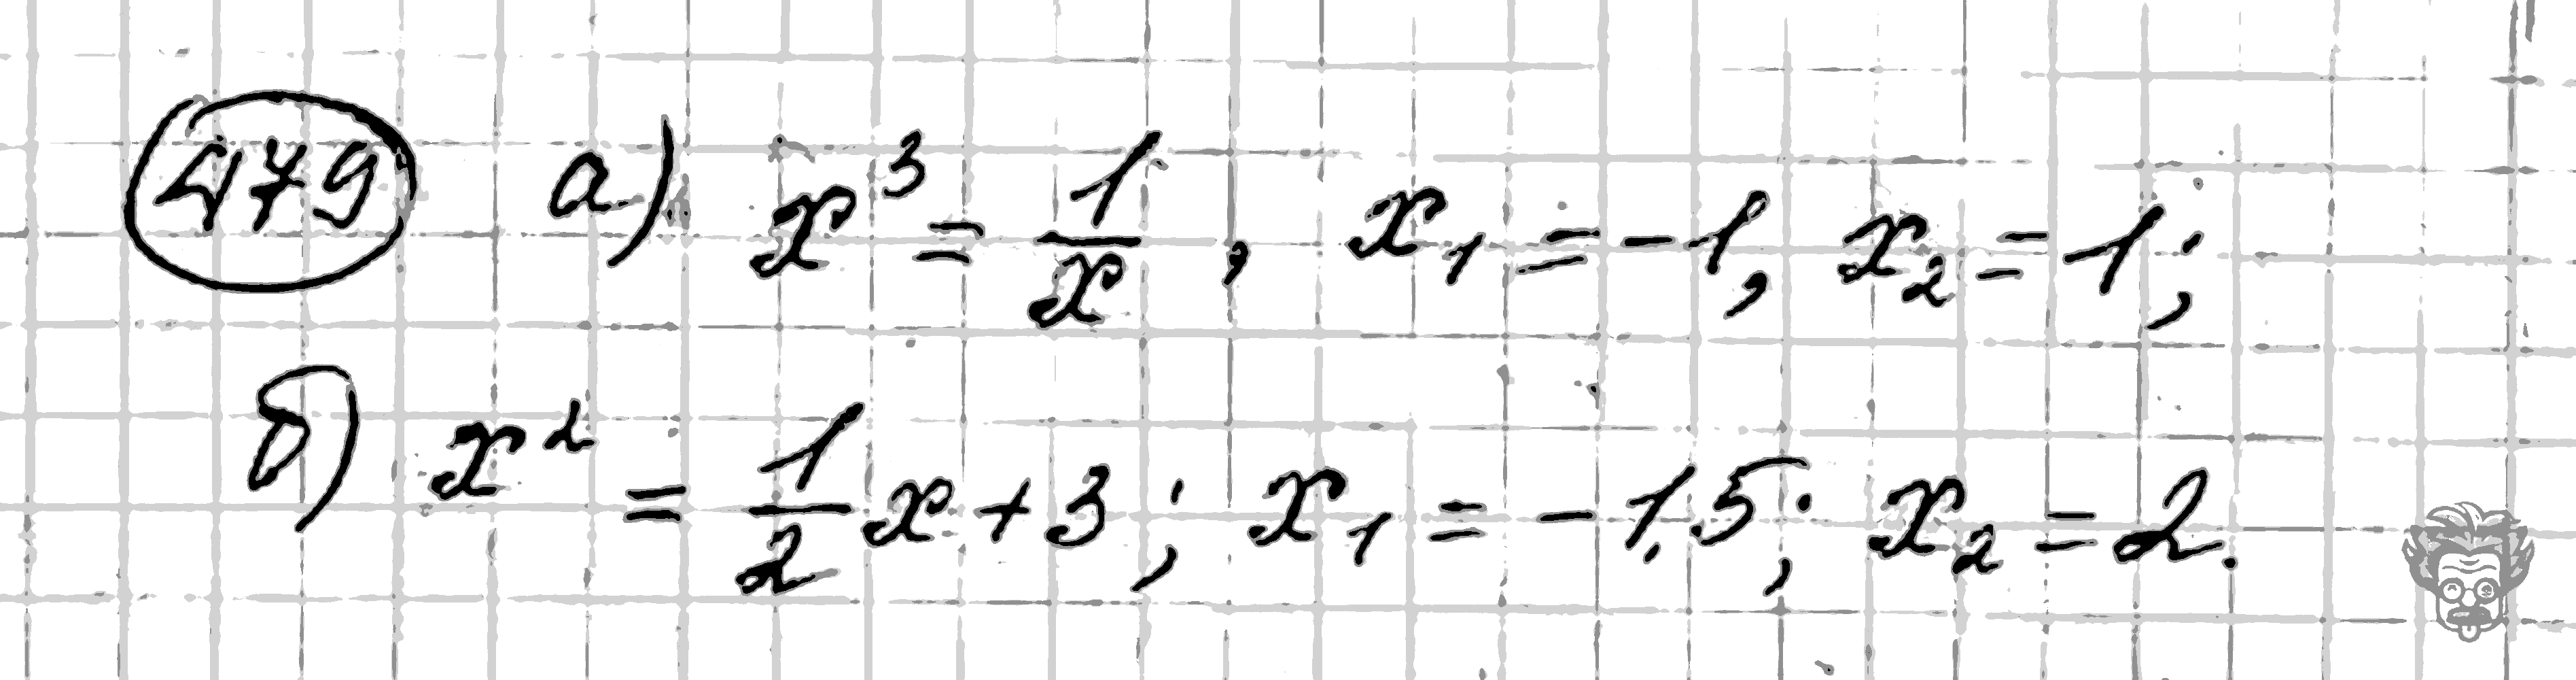 479 а) x³ = 1/x, x₁ = -1, x₂ = 1;
б) x² = 1/2 x + 3; x₁ = -1,5; x₂ = 2.